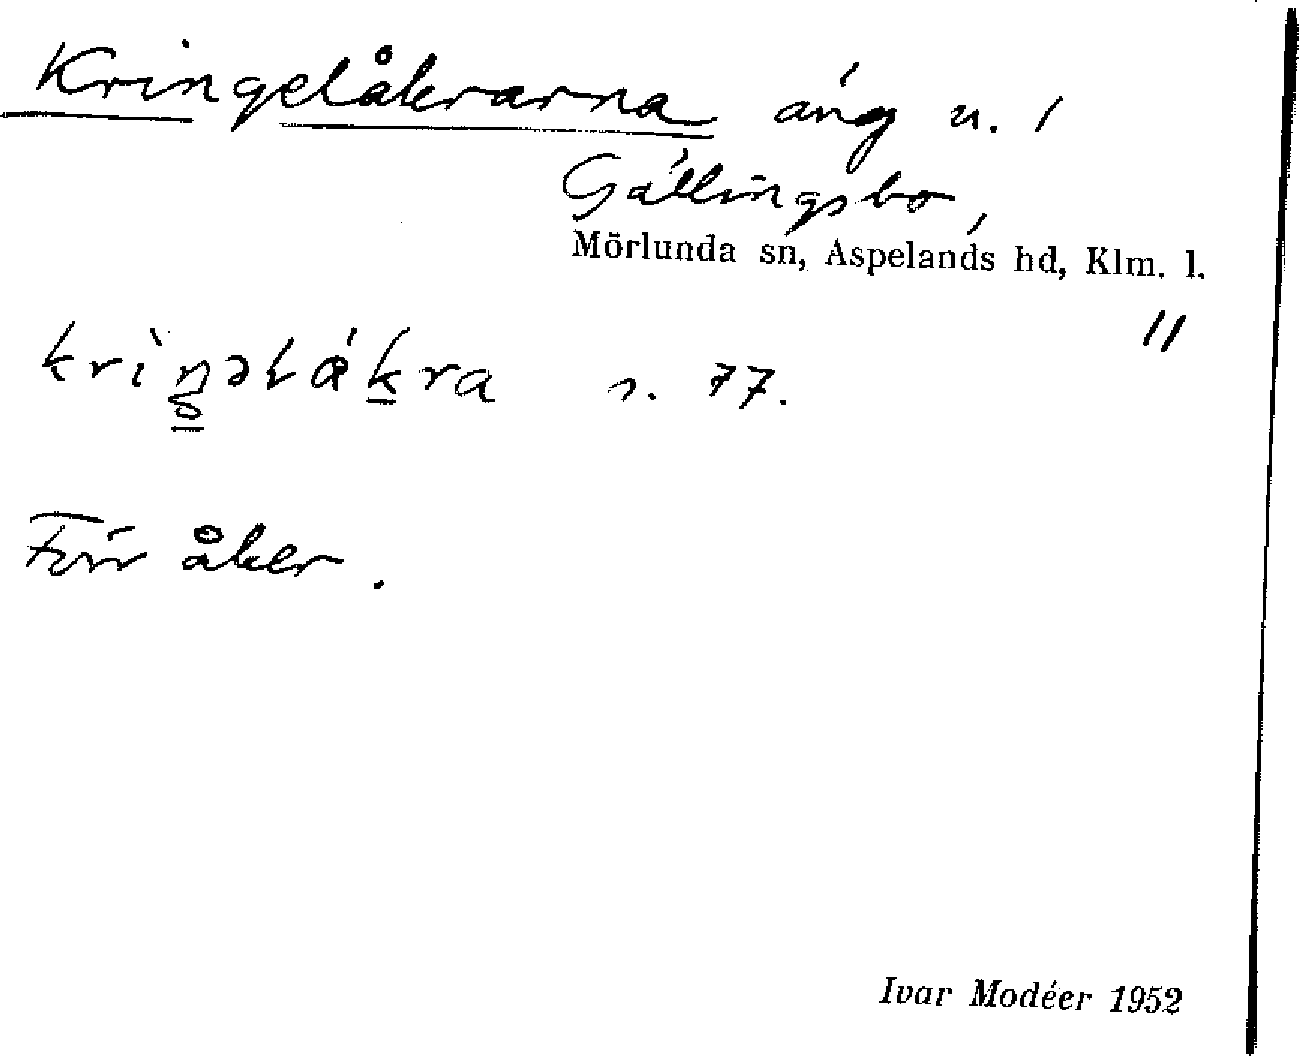 Kringelåkrarna äng u. i
Gällingsbo,
Mörlunda sn, Aspelands hd, Klm. l.
s. 77.
Förr åker.
Ivar Modéer 1952